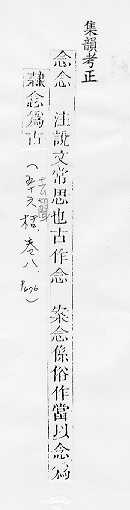 集韻考正
念念 注說文常思也古作念 案念係俗作當以念爲
隸念爲古 (卷八